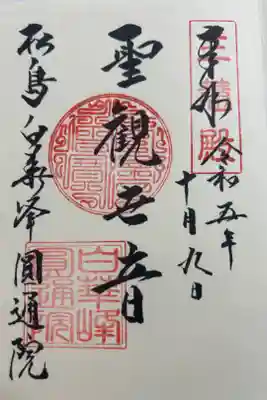 三慧殿
奉拝 令和五年
十月九日
聖觀世音
白華峰
圓通院
松島白華峰 圓通院